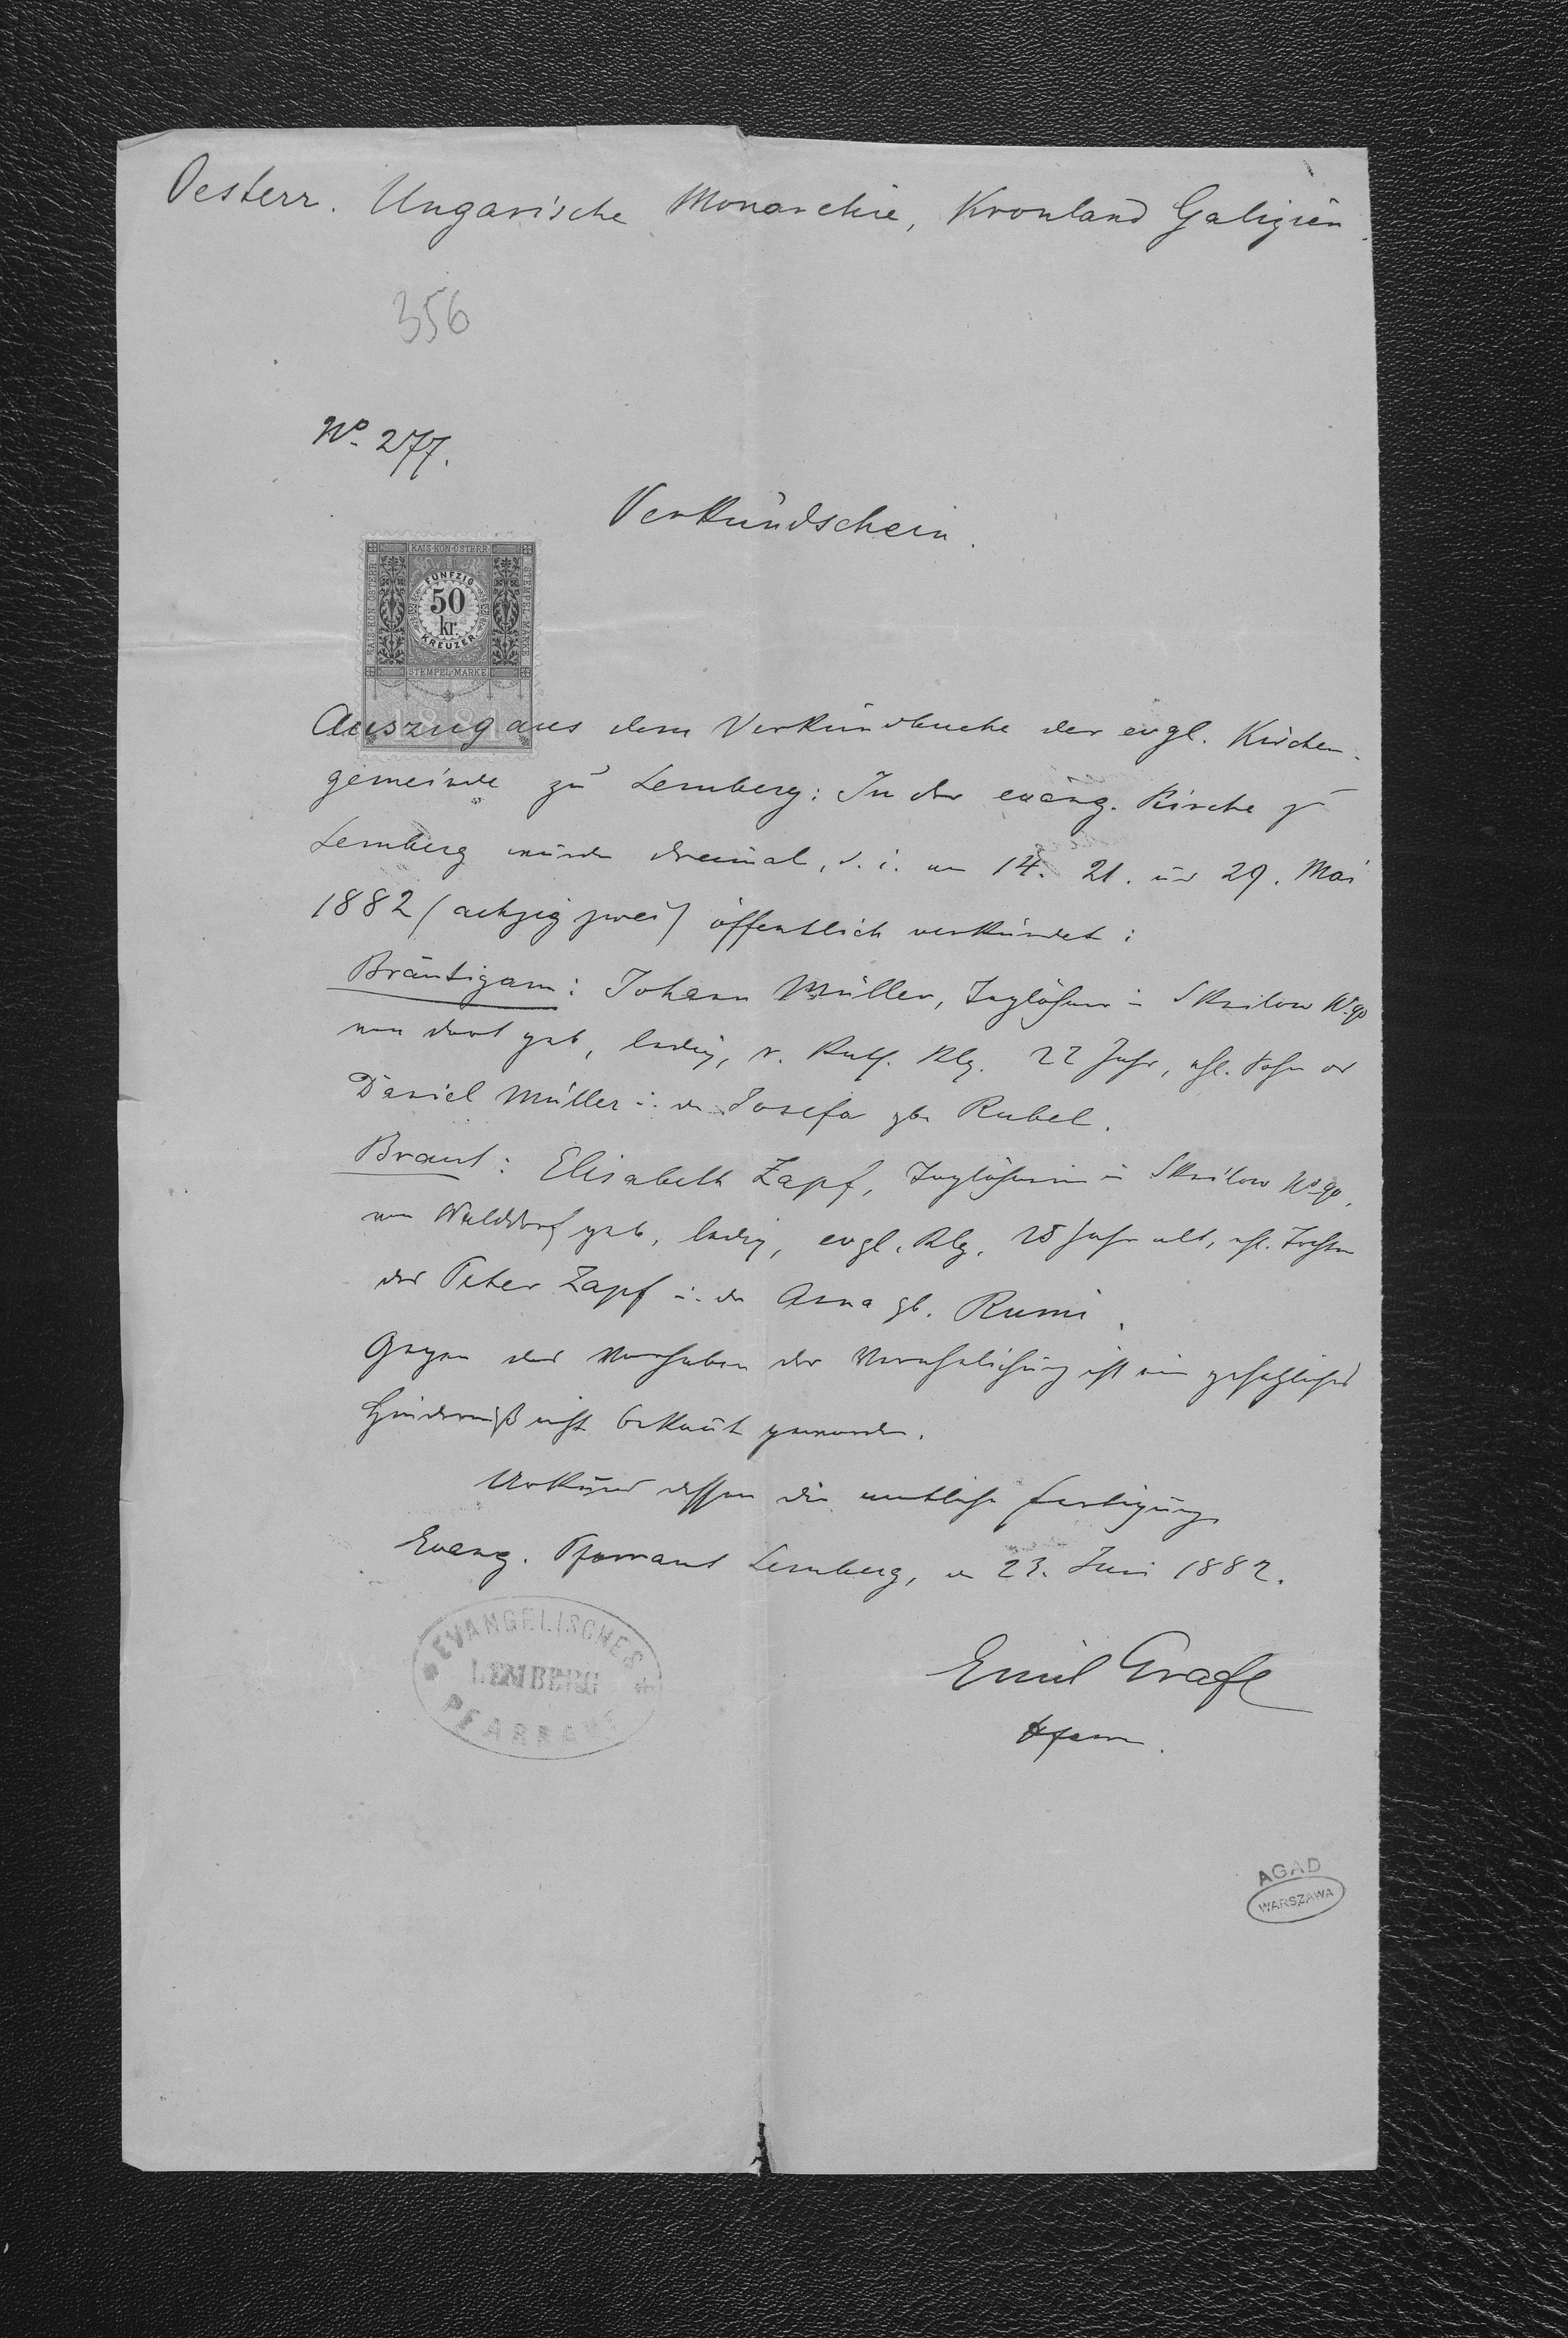 Oesterr. Ungarische Monarchie, Kronland Galizien.
356
No. 277.
Verkündschein.
KAIS·KÖN·ÖSTERR
KAIS·KÖN·ÖSTERR
STEMPEL-MARKE
FÜNFZIG
50
kr.
KREUZER
STEMPEL-MARKE
1881
Auszug aus dem Verkündbuche der evgl. Kirchen-
gemeinde zu Lemberg: In der evang. Kirche zu
Lemberg wurden dreimal, d. i. am 14. 21. und 29. Mai
1882 (achzig zwei) öffentlich verkündet:
Bräutigam: Johann Müller, Taglöhner in Sknilow No 90
von dort geb, ledig, r. kath. Rlg. 22 Jahr, ehl. Sohn des
Daniel Müller u. der Josefa geb. Rubel.
Braut: Elisabeth Zapf, Taglöhnerin in Sknilow No 90,
von Walddorf geb, ledig, evgl. Rlg. 25 Jahr alt, ehl. Tochter
des Peter Zapf u. der Anna gb. Rumi.
Gegen das Vorhaben der Verehelichung ist ein gesetzliches
Hinderniß nicht bekannt geworden.
Urkund dessen die amtliche Fertigung
Evang. Pfarramt Lemberg, den 23. Juni 1882.
EVANGELISCHES
LEMBERG
PFARRAMT
Emil Grafl
Pfarrer.
AGAD
WARSZAWA